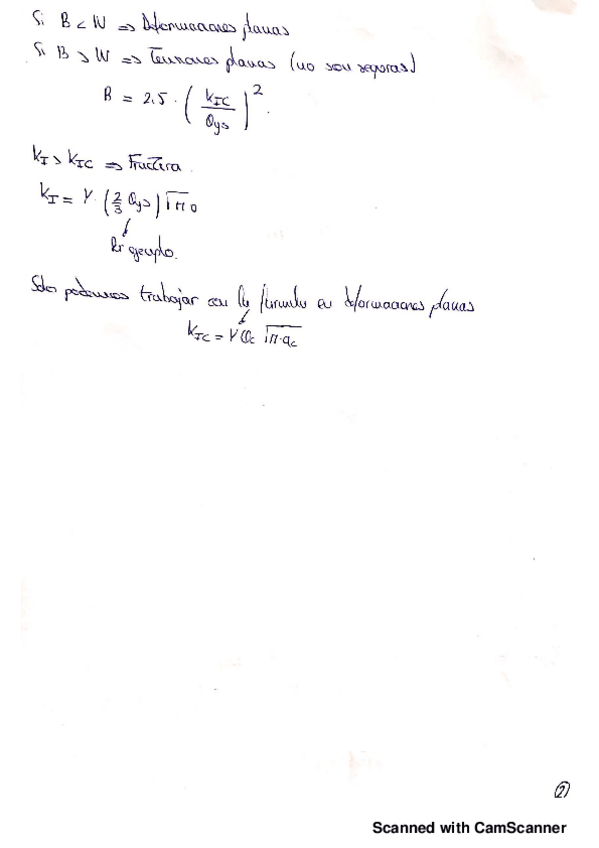 Si B < W => Deformaciones planas
Si B > W => Tensiones planas (no son seguras)
B = 2,5 · ( K_IC / σys )^2
K_I > K_IC => Fractura
K_I = Y · ( 2/3 σys ) √π a
Por ejemplo.
Solo podemos trabajar con la fórmula en deformaciones planas
K_IC = Y σc √π·ac
2
Scanned with CamScanner